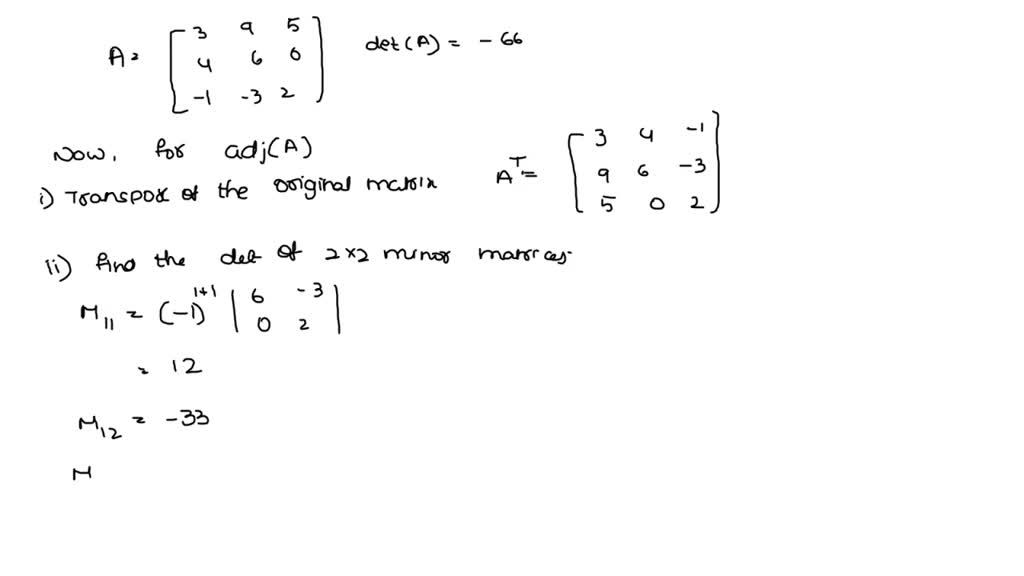 A = [ 3 9 5
4 6 0
-1 -3 2 ] det(A) = -66
Now, for adj(A)
i) Transpose of the original matrix
A^T = [ 3 4 -1
9 6 -3
5 0 2 ]
(ii) find the det of 2×2 minor matrices.
M_11 = (-1)^1+1 | 6 -3
0 2 |
= 12
M_12 = -33
M